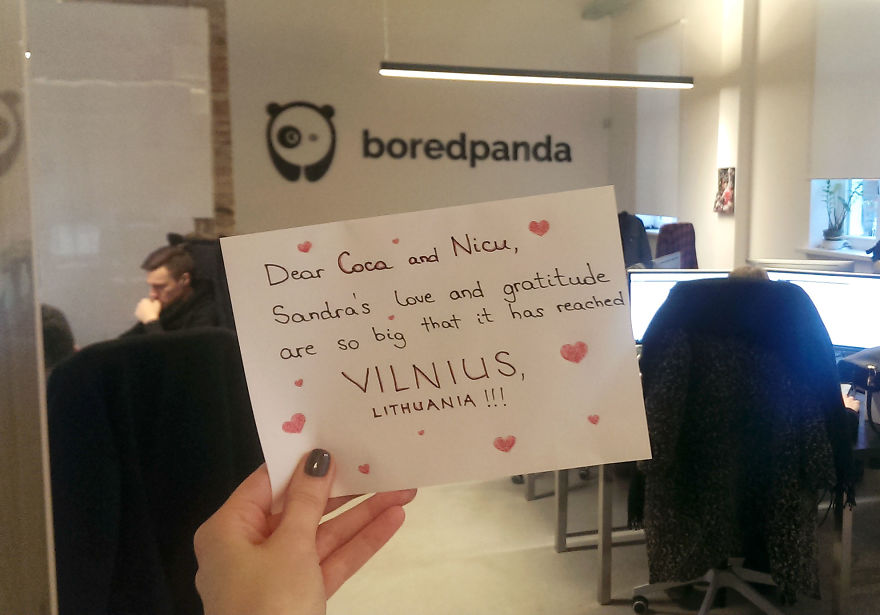 boredpanda
Dear Coca and Nicu,
Sandra's love and gratitude
are so big that it has reached
VILNIUS,
LITHUANIA !!!